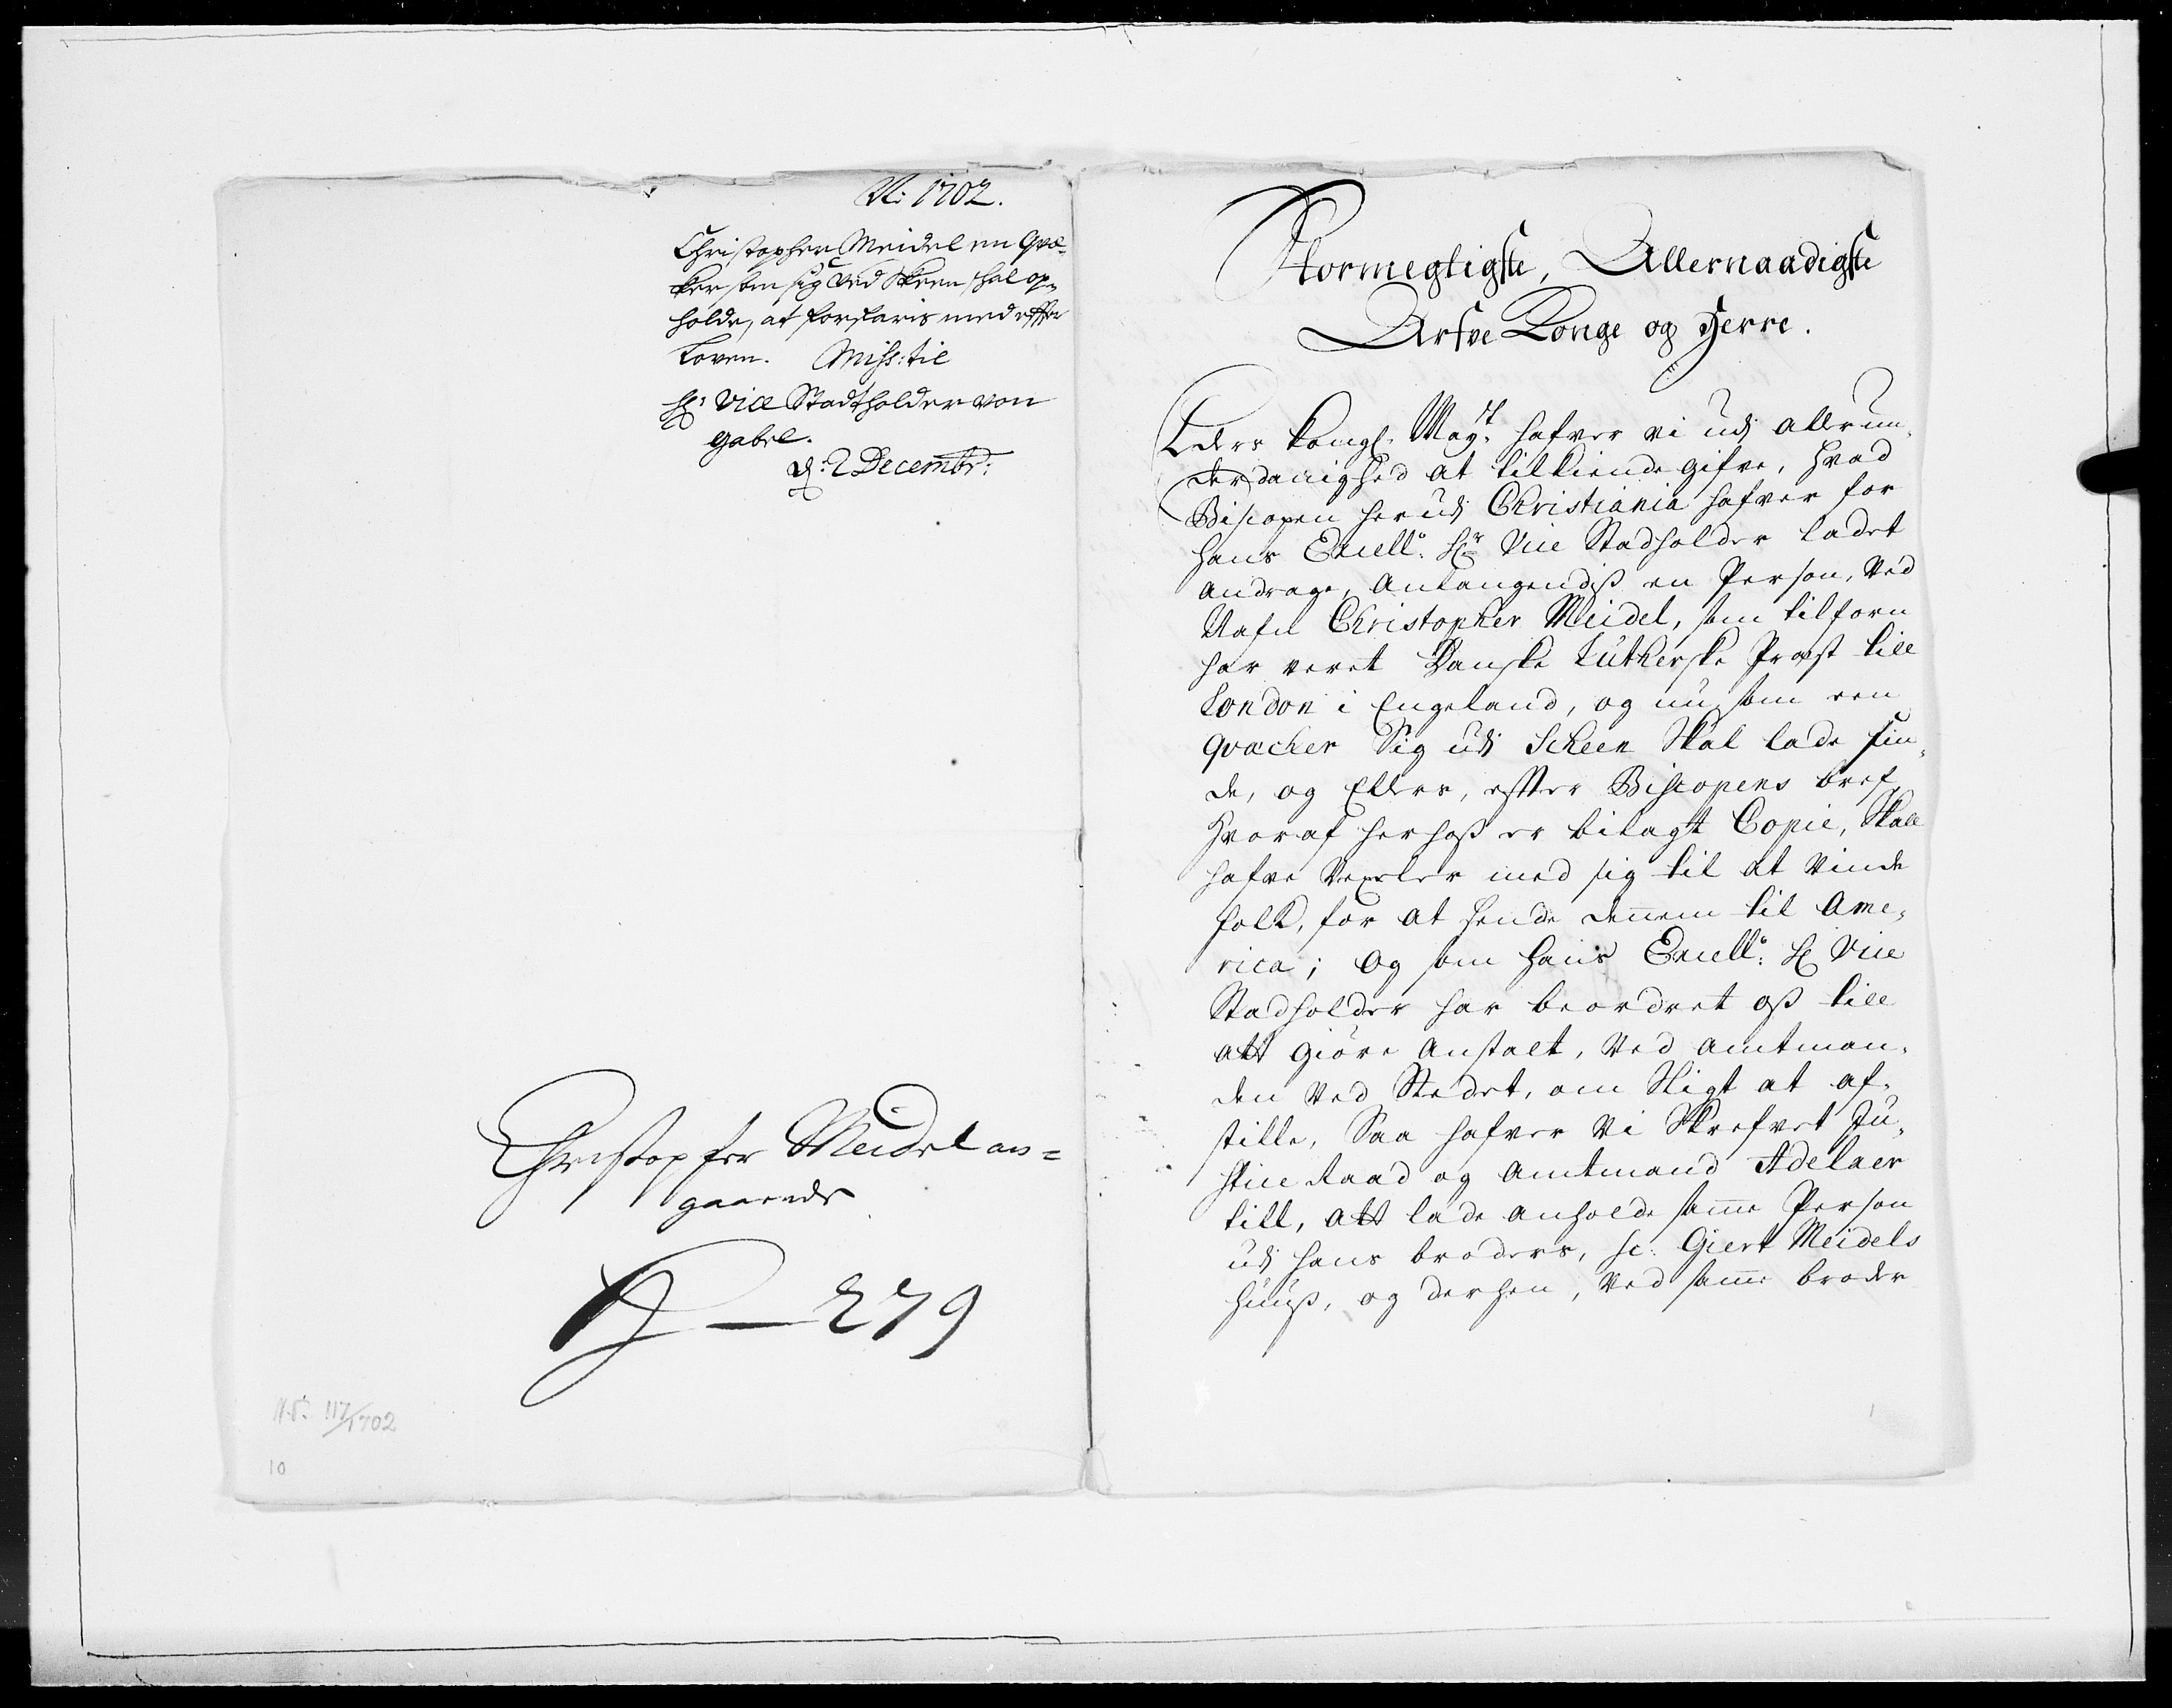 A: 1702.
Christopher Meidel en Qvæ-
ker som sig ved Skeen skal op-
holde, at forfaris med effter
Loven. Miss: til
H: Vice Stadtholder von
Gabel.
d: 2 Decembr:
Christopher Meidel an=
gaaende
279
117/1702
10
Stormegtigste, Allernaadigste
Arfve Konge og Herre.
Eders Kongl. May:t hafver vi udj allerun-
derdanighed at tilkiende gifve, hvad
Biscopen her udj Christiania hafver for
hans Excell:e Hr Vice Stadholder ladet
andrage, Anlangendiß en Person, Ved
Nafn Christopher Meidel, som tilforn
har veret Danske Lutherske Præst till
London i Engeland, og nu som een
Qvacker Sig udj Scheen Skal lade fin-
de, og Ellers, effter Biscopens bref,
Hvoraf herhoß er bilagt Copie, Skall
hafve Vexeler med sig til at Vinde
folk, for at sende dennem til Ame-
rica; og som hans Excell:e H Vice
Stadholder har beordret oß till
att giöre Anstalt, Ved Amtman-
den Ved Stedet, om Sligt at af-
stille, Saa hafver Vi Skrefvet Ju-
stice Raad og Amtmand Adelaer
till, att lade anholde samme Person
udj hans broders, sc: Giert Meidels
huuß, og derhen, Ved samme broder